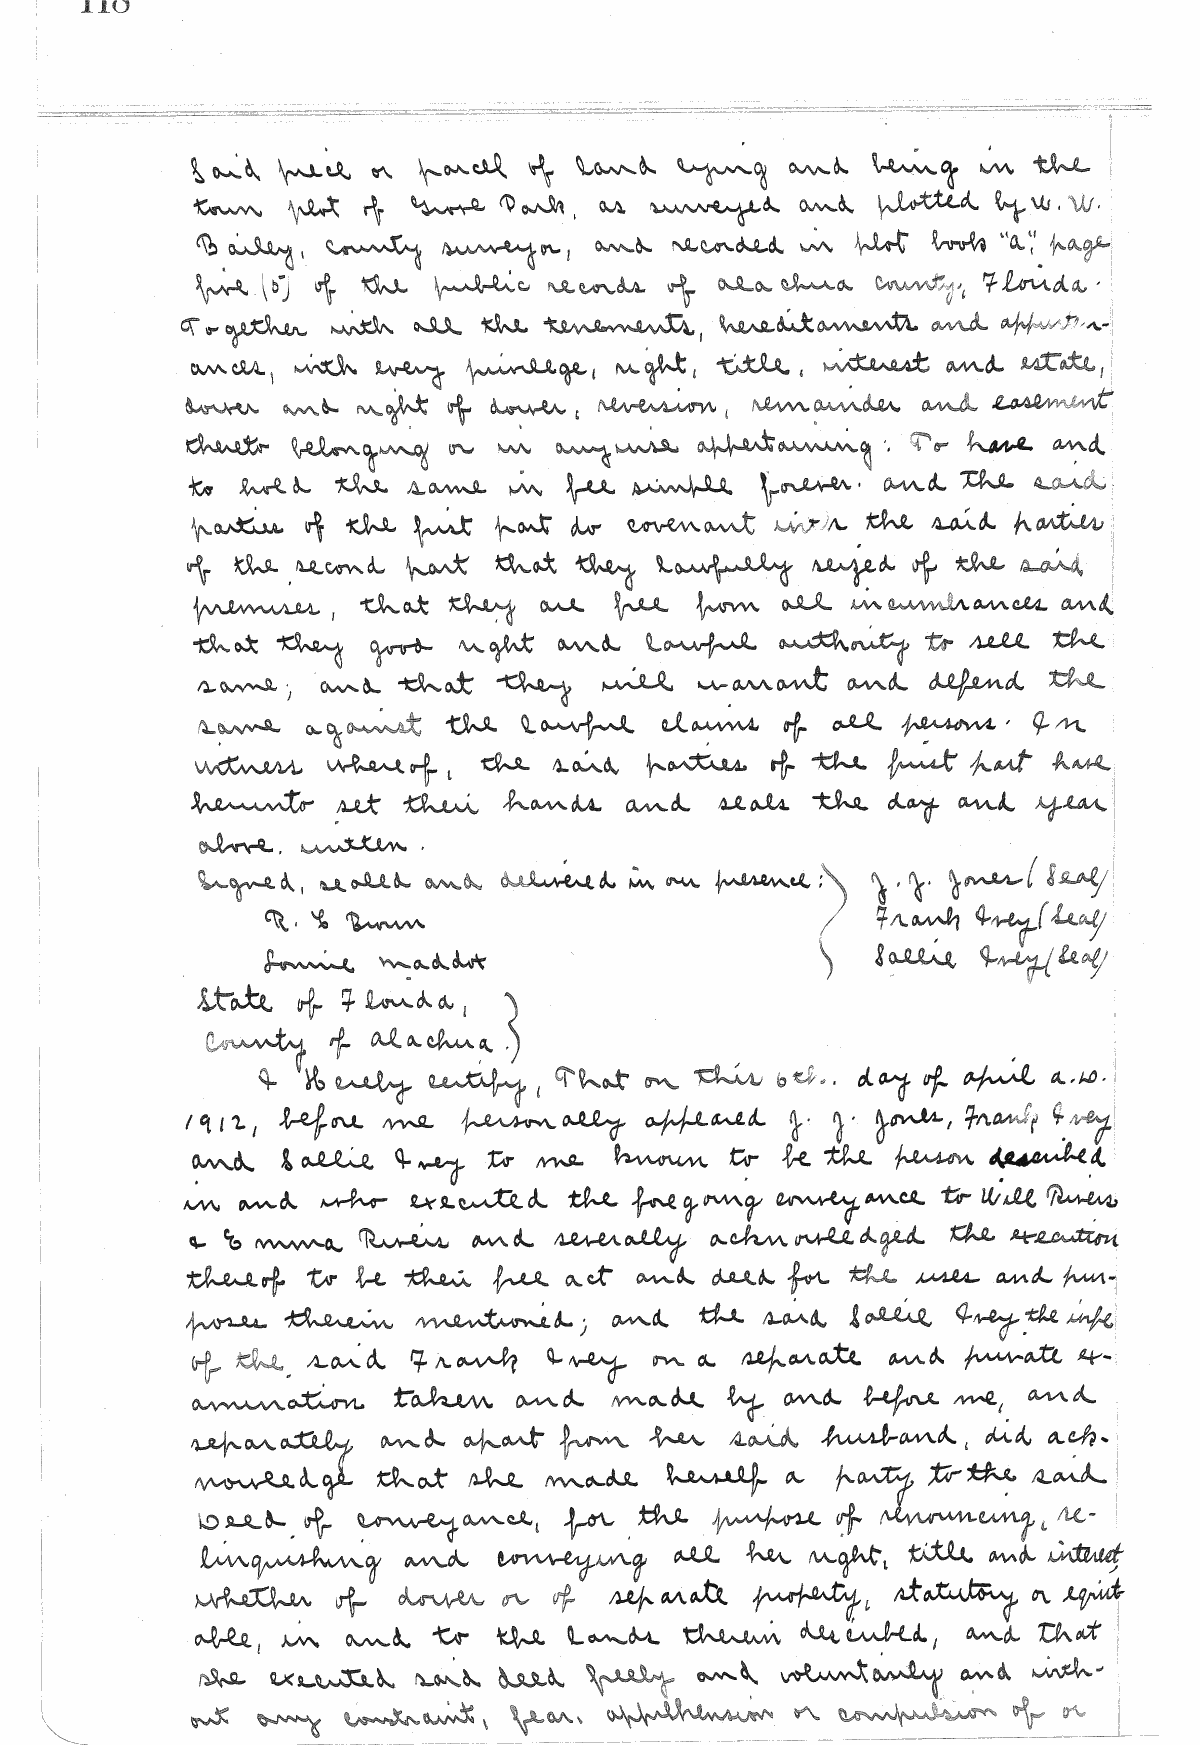 118
Said piece or parcel of land lying and being in the
town plot of Grove Park, as surveyed and plotted by W. W.
Bailey, county surveyor, and recorded in plot book "a", page
five (5) of the public records of alachua county, Florida.
Together with all the tenements, hereditaments and appurten-
ances, with every privilege, right, title, interest and estate,
dower and right of dower, reversion, remainder and easement
thereto belonging or in anywise appertaining: To have and
to hold the same in fee simple forever. and The said
parties of the first part do covenant with the said parties
of the second part that they lawfully seized of the said
premises, that they are free from all incumbrances and
that they good right and lawful authority to sell the
same; and that they will warrant and defend the
same against the lawful claims of all persons. In
witness whereof, the said parties of the first part have
hereunto set their hands and seals the day and year
above. written.
Signed, sealed and delivered in our presence: } J. J. Jones (Seal)
R. E Brown Frank Ivey (Seal)
Lonnie maddox Sallie Ivey (Seal)
State of Florida,
County of alachua. }
I Hereby certify, That on this 6th. day of april a.D.
1912, before me personally appeared J. J. Jones, Frank Ivey
and Sallie Ivey to me known to be the person described
in and who executed the foregoing conveyance to Will Rivers
& Emma Rivers and severally acknowledged the execution
thereof to be their free act and deed for the uses and pur-
poses therein mentioned; and the said Sallie Ivey the wife
of the said Frank Ivey on a separate and private ex-
amination taken and made by and before me, and
separately and apart from her said husband, did ack-
nowledge that she made herself a party to the said
Deed of conveyance, for the purpose of renouncing, re-
linquishing and conveying all her right, title and interest,
whether of dower or of separate property, statutory or equit
able, in and to the lands therein described, and That
she executed said deed freely and voluntarily and with-
out any constraint, fear, apprehension or compulsion of or